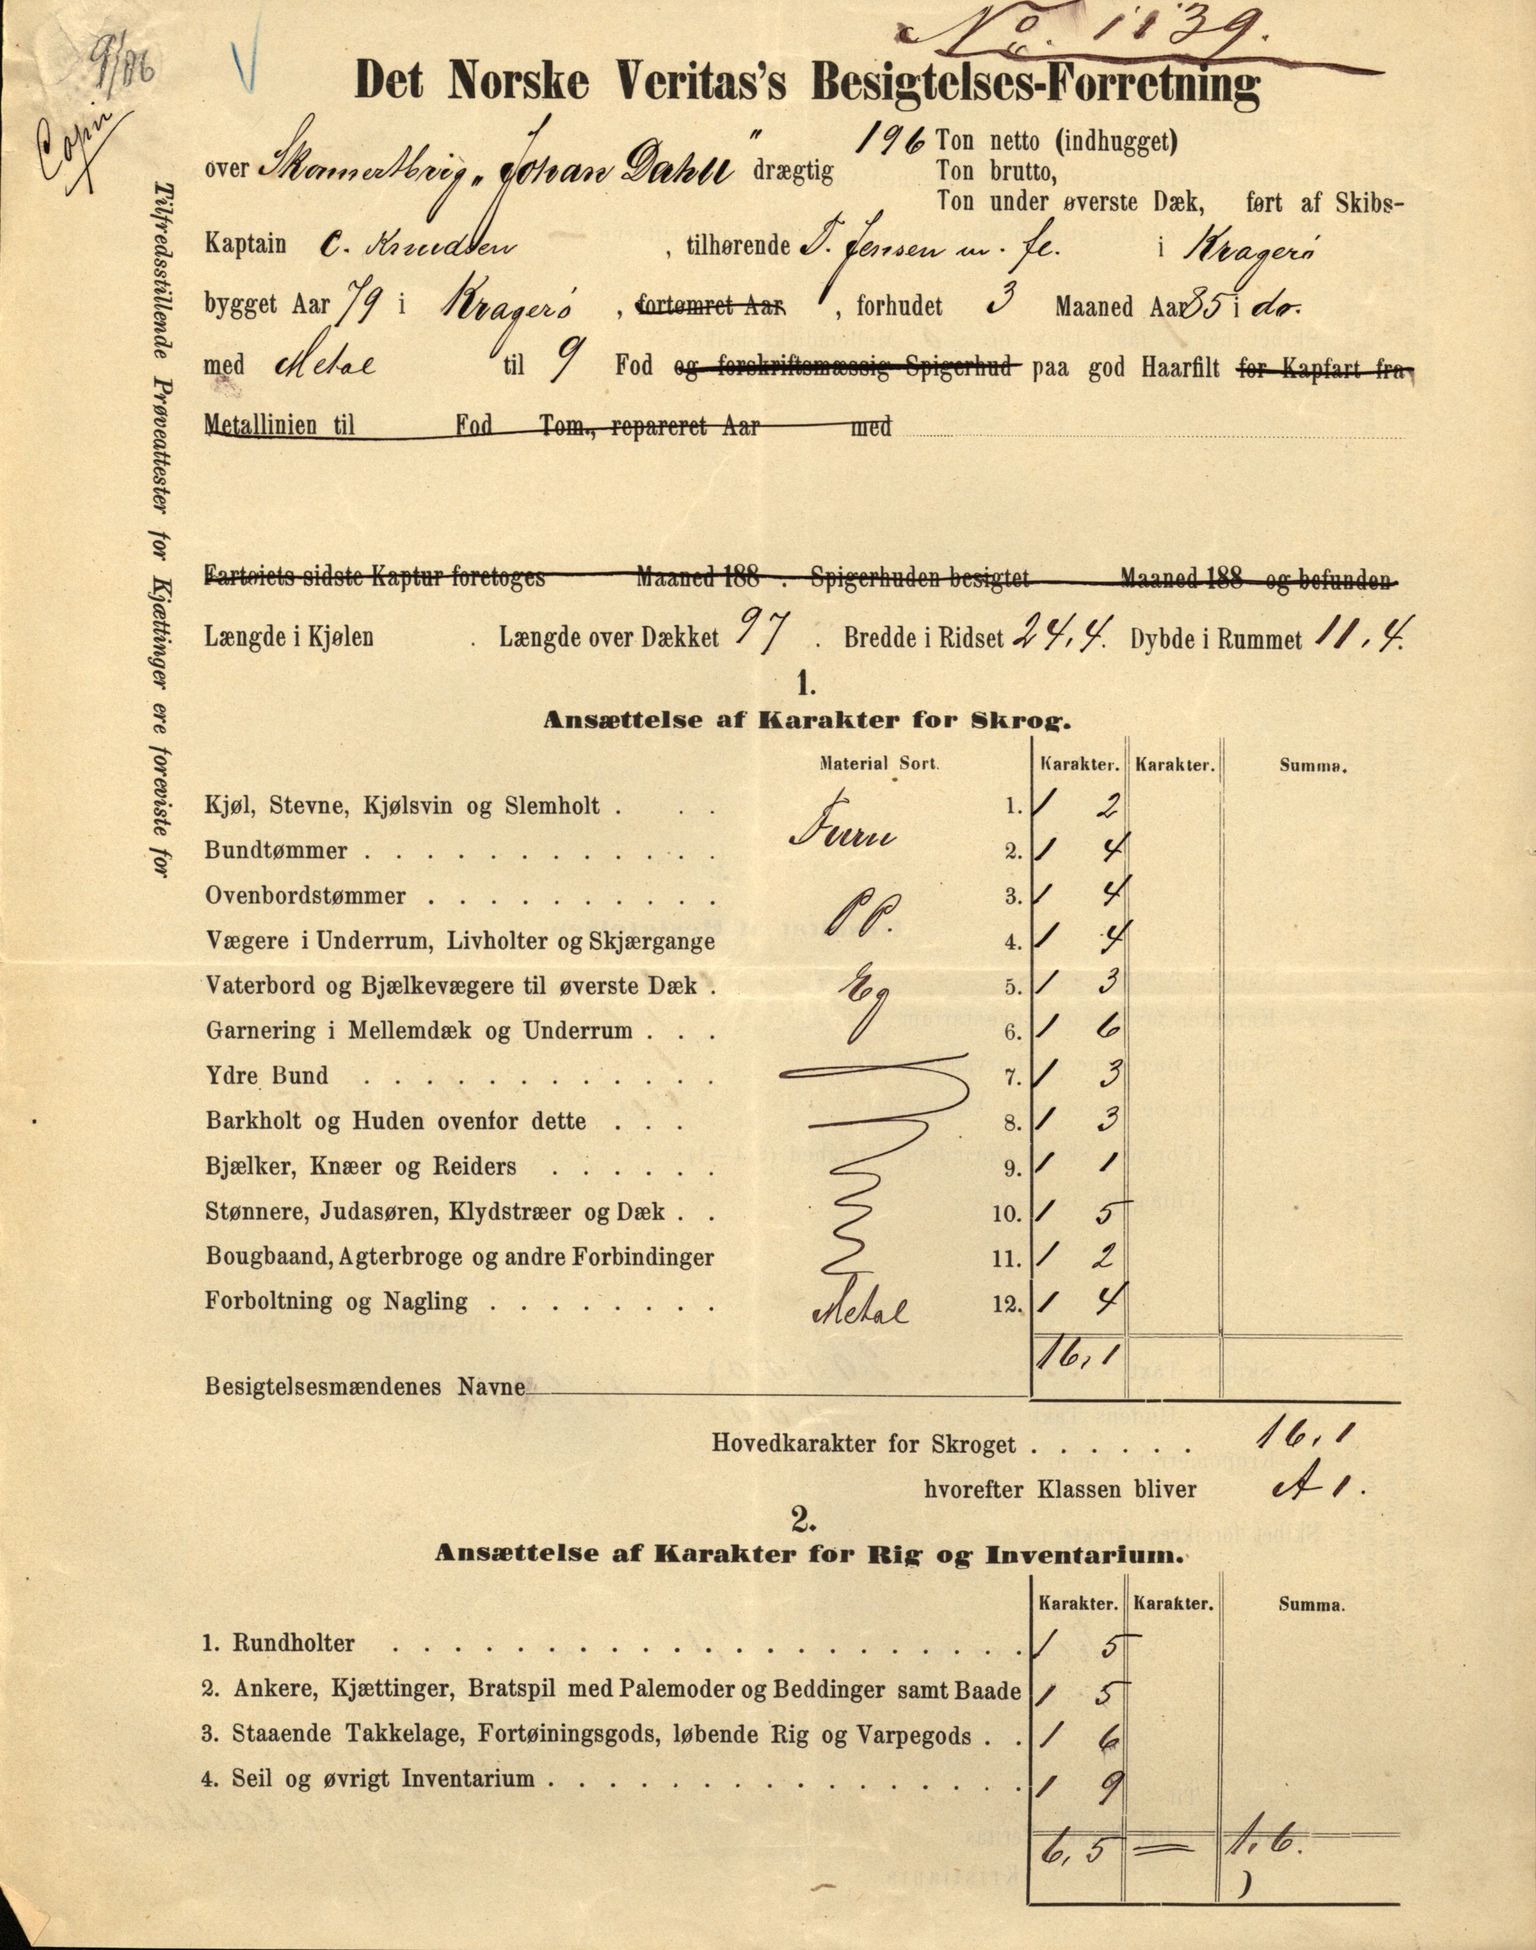 No. 1139.
9/86
Copi
Det Norske Veritas's Besigtelses-Forretning
over Skonnertbrig „Johan Dahll" drægtig 196 Ton netto (indhugget)
Ton brutto,
Ton under øverste Dæk, ført af Skibs-
Kaptain C. Knudsen , tilhørende T. Jensen m. fl. i Kragerø
bygget Aar 79 i Kragerø , fortømret Aar , forhudet 3 Maaned Aar 85 i do.
med Metal til 9 Fod og forskriftsmæssig Spigerhud paa god Haarfilt for Kapfart fra
Metallinien til Fod Tom., repareret Aar med
Fartøiets sidste Kaptur foretoges Maaned 188 . Spigerhuden besigtet Maaned 188 og befunden
Længde i Kjølen . Længde over Dækket 97 . Bredde i Ridset 24,4. Dybde i Rummet 11,4.
1.
Ansættelse af Karakter for Skrog.
Material Sort. Karakter. Karakter. Summa.
Kjøl, Stevne, Kjølsvin og Slemholt . . . 1. 1 2
Furu
Bundtømmer . . . . . . . . . . . 2. 1 4
Ovenbordstømmer . . . . . . . . . 3. 1 4
P P.
Vægere i Underrum, Livholter og Skjærgange 4. 1 4
Vaterbord og Bjælkevægere til øverste Dæk . Eg 5. 1 3
Garnering i Mellemdæk og Underrum . . . 6. 1 6
Ydre Bund . . . . . . . . . . . 7. 1 3
Barkholt og Huden ovenfor dette . . . 8. 1 3
Bjælker, Knæer og Reiders . . . . . . 9. 1 1
Stønnere, Judasøren, Klydstræer og Dæk . . 10. 1 5
Bougbaand, Agterbroge og andre Forbindinger 11. 1 2
Forboltning og Nagling . . . . . . . . Metal 12. 1 4
16,1
Besigtelsesmændenes Navne
Hovedkarakter for Skroget . . . . . . 16,1
hvorefter Klassen bliver A 1.
2.
Ansættelse af Karakter for Rig og Inventarium.
Karakter. Karakter. Summa.
1. Rundholter . . . . . . . . . . . . . . . . . . . 1 5
2. Ankere, Kjættinger, Bratspil med Palemoder og Beddinger samt Baade 1 5
3. Staaende Takkelage, Fortøiningsgods, løbende Rig og Varpegods . . 1 6
4. Seil og øvrigt Inventarium . . . . . . . . . . . . . . . . 1 9
6,5 = 1.6.
Tilfredsstillende Prøveattester for Kjættinger ere foreviste for